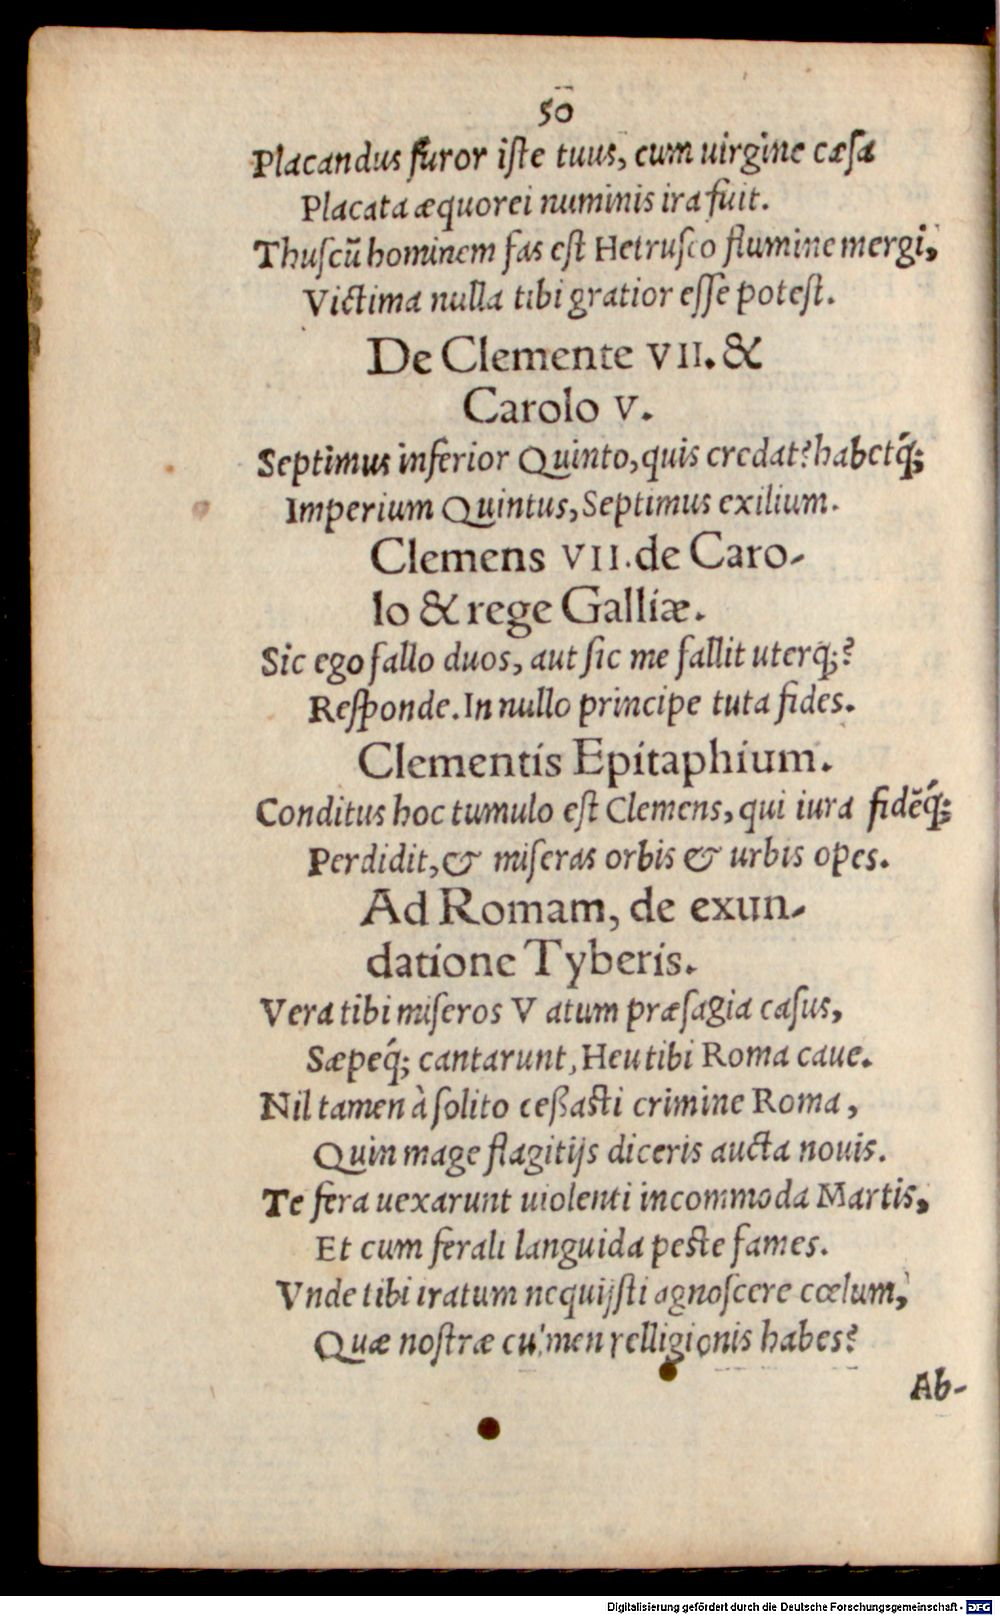 50
Placandus furor iſte tuus, cum uirgine cæſa
Placata æquorei numinis ira fuit.
Thuſcũ hominem fas eſt Hetruſco flumine mergi,
Victima nulla tibi gratior eſſe poteſt.
De Clemente VII. &
Carolo V.
Septimus inferior Quinto, quis credat? habetq́;
Imperium Quintus, Septimus exilium.
Clemens VII. de Caro-
lo & rege Galliæ.
Sic ego fallo duos, aut ſic me fallit uterq;?
Reſponde. In nullo principe tuta fides.
Clementis Epitaphium.
Conditus hoc tumulo eſt Clemens, qui iura fidẽq́;
Perdidit, & miſeras orbis & urbis opes.
Ad Romam, de exun-
datione Tyberis.
Vera tibi miſeros Vatum præſagia caſus,
Sæpeq́; cantarunt, Heu tibi Roma caue.
Nil tamen à ſolito ceßaſti crimine Roma,
Quin mage flagitijs diceris aucta nouis.
Te fera uexarunt uiolenti incommoda Martis,
Et cum ferali languida peſte fames.
Vnde tibi iratum nequijſti agnoſcere cœlum,
Quæ noſtræ culmen relligionis habes?
Ab-
Digitalisierung gefördert durch die Deutsche Forschungsgemeinschaft - DFG